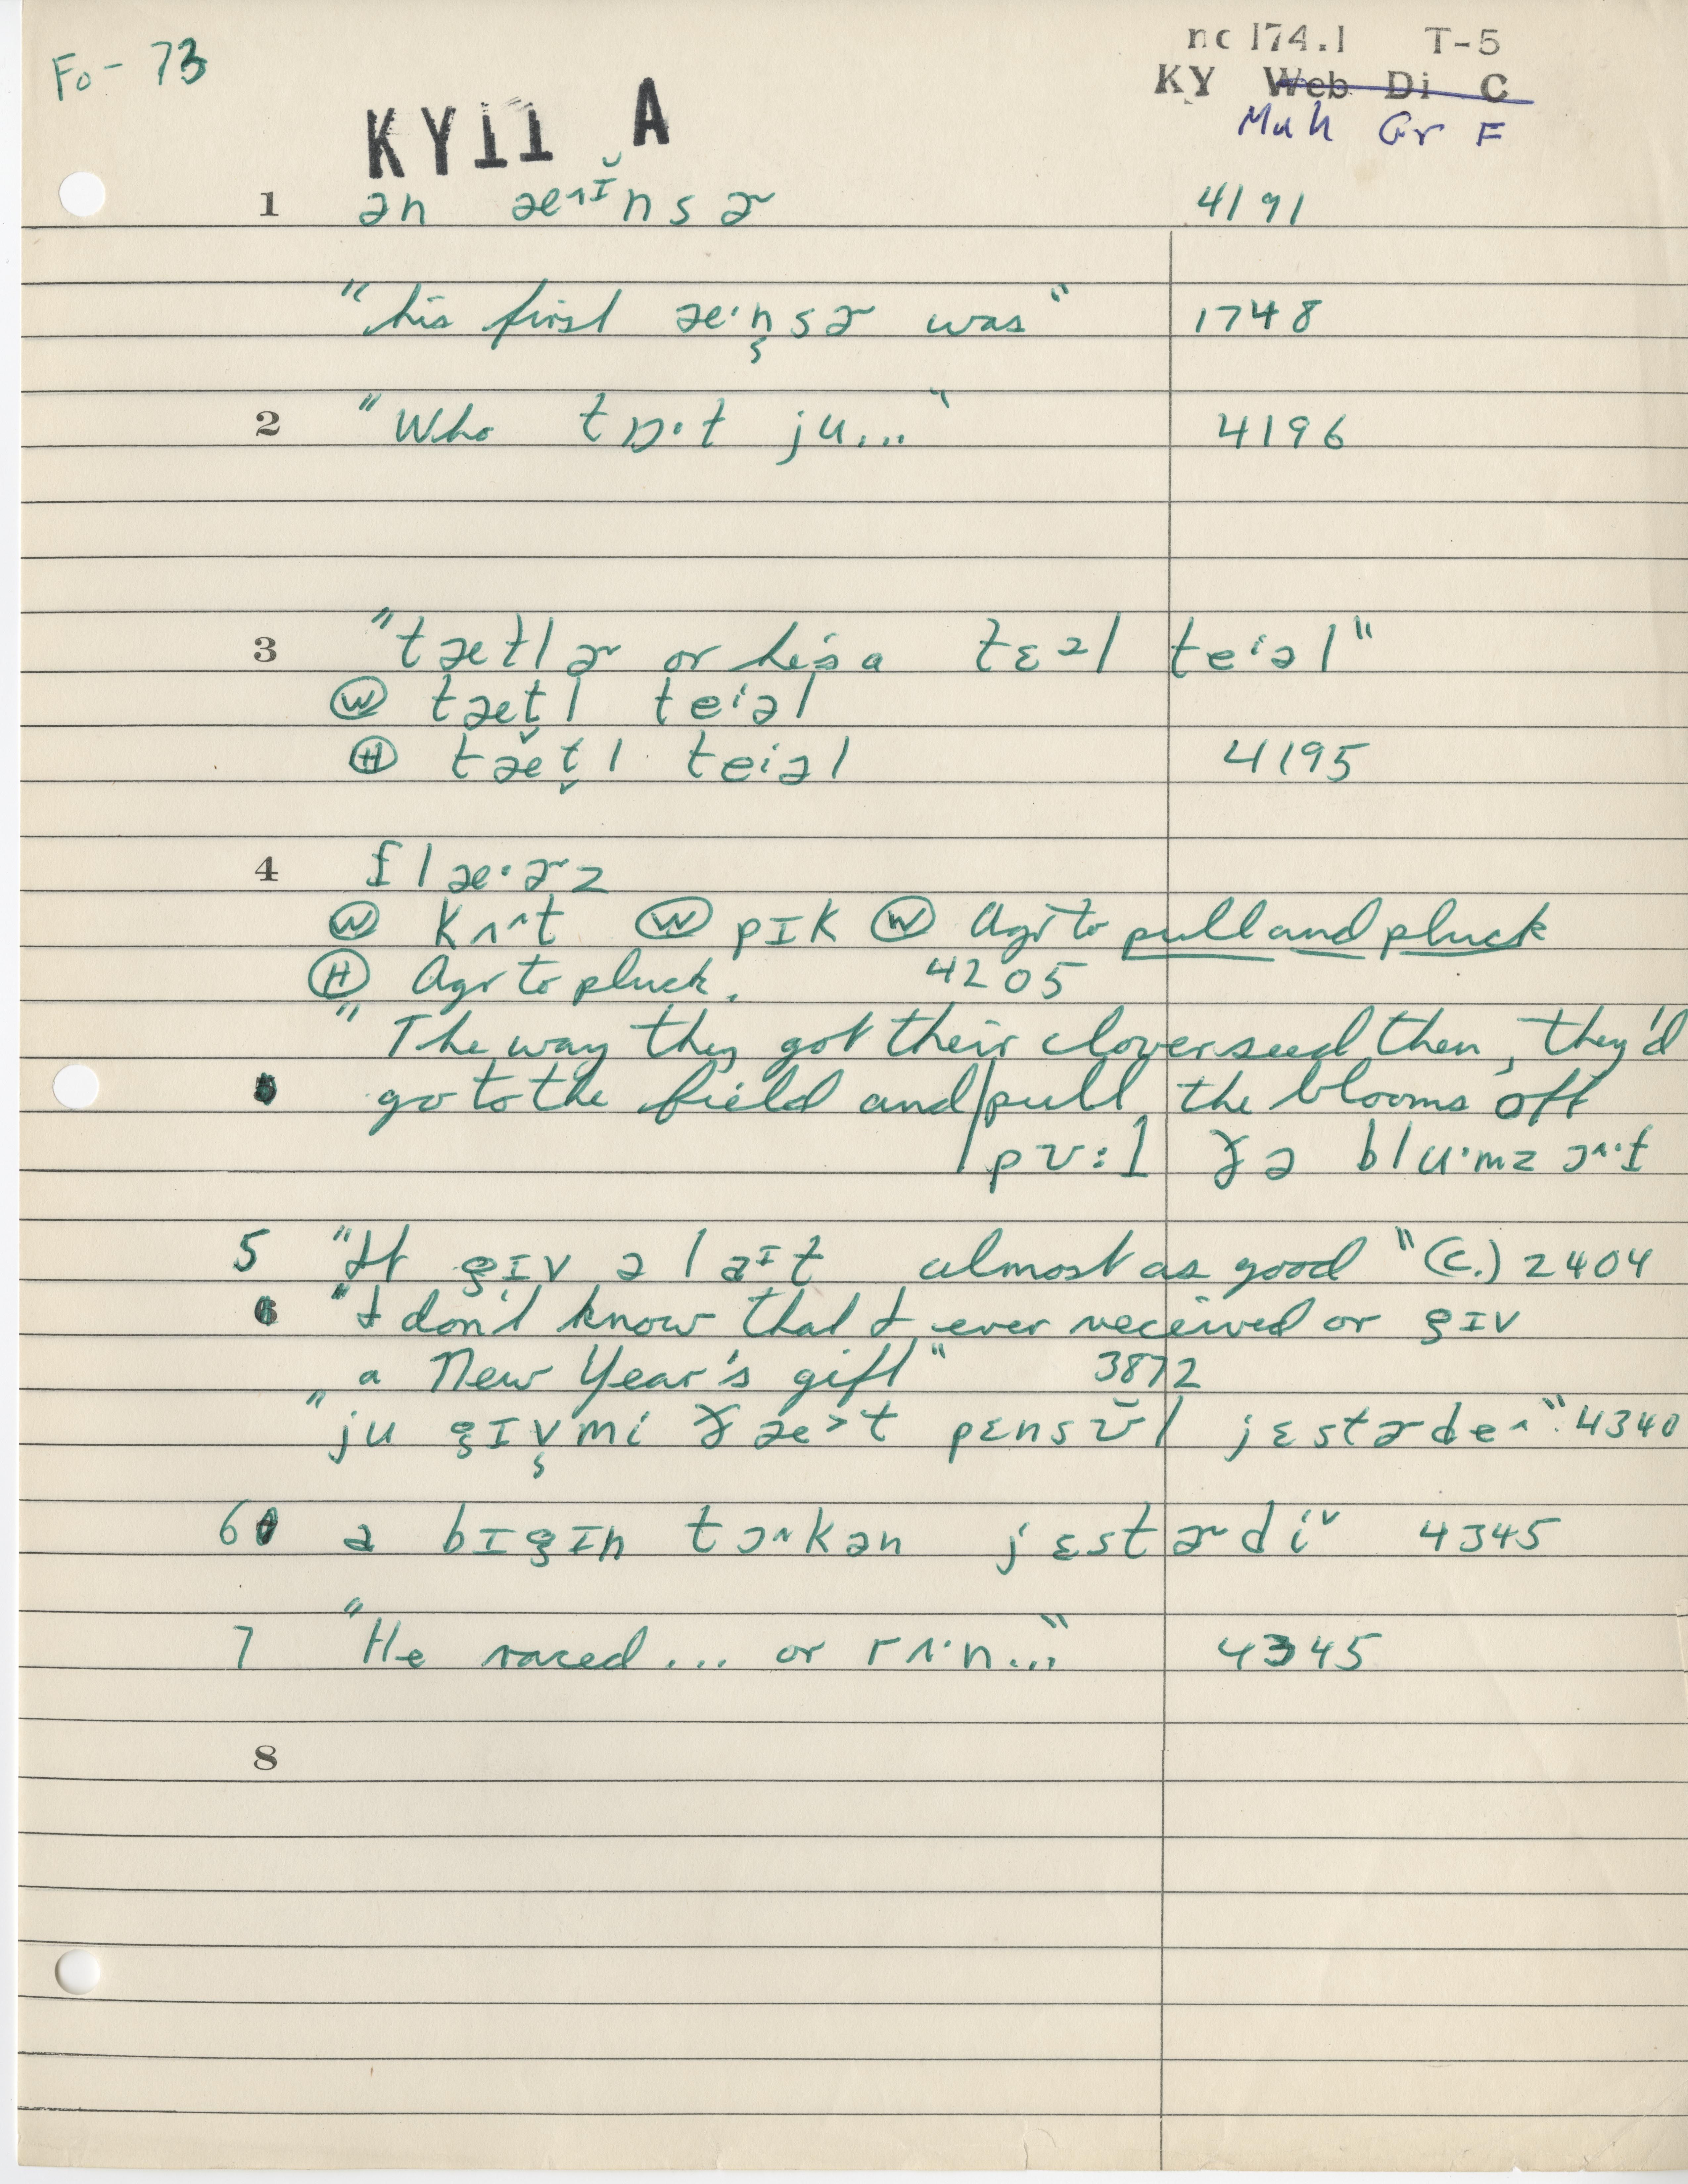 Fo - 73
nc 174.1 T-5
KY Web Di C
Muh Gr F
KY11 A
1 ən æ˄ɪ̆nsɚ 4191
"his first æ·n̬sɚ was" 1748
2 "Who tɒ·t ju..." 4196
3 "tætlɚ or he's a tɛəl teⁱəl"
Ⓦ tæt̬l teⁱəl
Ⓗ tæt̬l teiəl 4195
4 flæ·ɚz
Ⓦ kʌ^t Ⓦ pɪk Ⓦ Agr to pull and pluck
Ⓗ Agr to pluck. 4205
"The way they got their cloverseed then, they'd
go to the field and/pull the blooms off
/pʊ:l ðə blu·mz ɔ^·f
5 "It gɪv ə laɪt almost as good" (c.) 2404
"I don't know that I ever received or gɪv
a New Year's gift" 3872
"ju gɪv̬mi ðæ>t pɛnsʊ̆l jɛstɚde^" 4340
6 ə bɪgɪn tɔ^kən jɛstɚdiˇ 4345
7 "He raced... or rʌ·n..." 4345
8